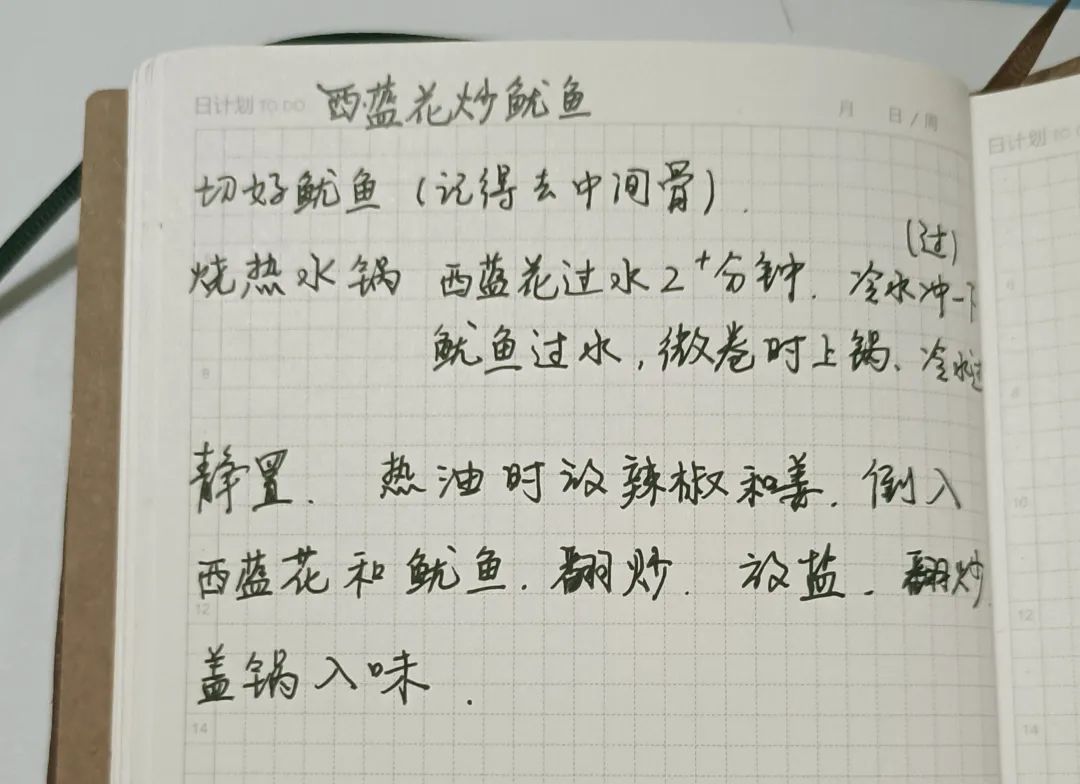 日计划 TO DO 西蓝花炒鱿鱼 月 日/周
切好鱿鱼(记得去中间骨).
(过)
烧热水锅 西蓝花过水2+分钟. 冷水冲一下
鱿鱼过水,微卷时上锅、冷水过
8
静置. 热油时放辣椒和姜. 倒入
西蓝花和鱿鱼. 翻炒. 放盐. 翻炒.
12
盖锅入味.
14
日计划 TO
6
8
10
12
14